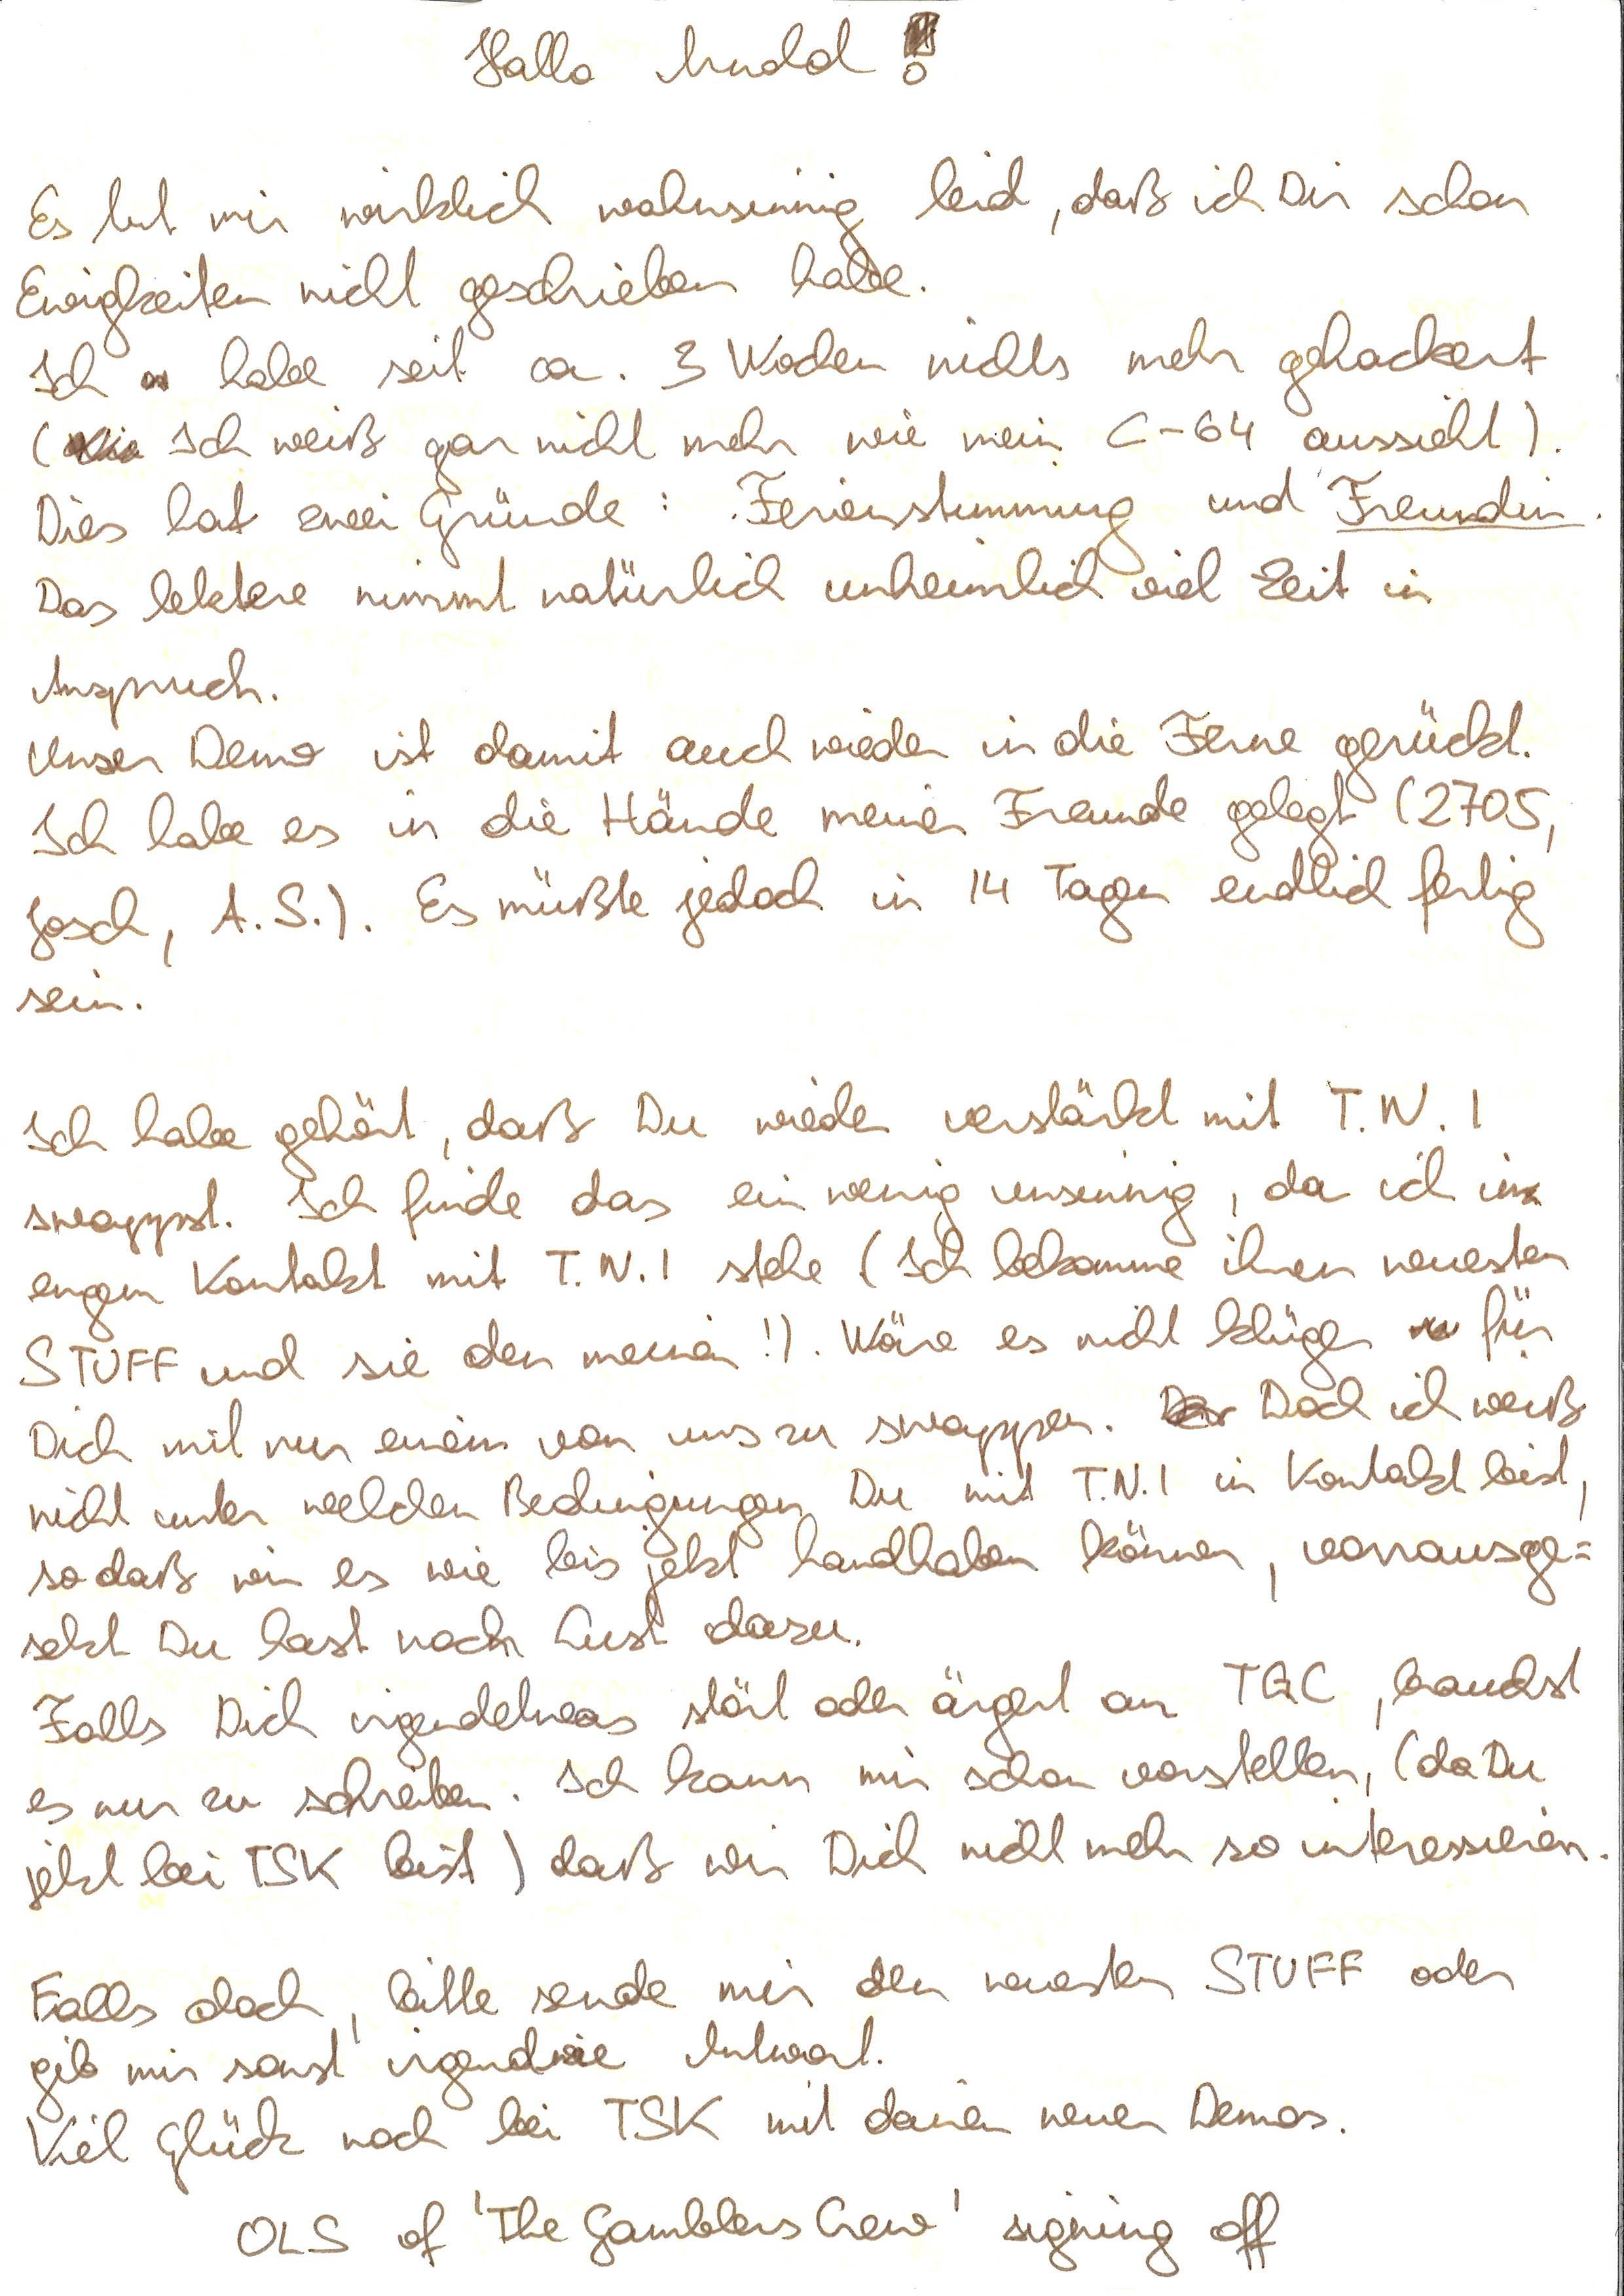 Hallo Mudd!
Es tut mir wirklich wahnsinnig leid, daß ich Dir schon
Ewigkeiten nicht geschrieben habe.
Ich habe seit ca. 3 Wochen nichts mehr gehackert
(Ich weiß gar nicht mehr wie mein C-64 aussieht).
Dies hat zwei Gründe: Ferienstimmung und Freundin.
Das letztere nimmt natürlich unheimlich viel Zeit in
Anspruch.
Unser Demo ist damit auch wieder in die Ferne gerückt.
Ich habe es in die Hände meiner Freunde gelegt (2705,
Josch, A.S.). Es müßte jedoch in 14 Tagen endlich fertig
sein.
Ich habe gehört, daß Du wieder verstärkt mit T.N.I
swappst. Ich finde das ein wenig unsinnig, da ich in
engem Kontakt mit T.N.I stehe (Ich bekomme ihren neuesten
STUFF und sie den meinen!). Wäre es nicht klüger für
Dich mit nur einem von uns zu swappen. Doch ich weiß
nicht unter welchen Bedingungen Du mit T.N.I in Kontakt bist,
sodaß wir es wie bis jetzt handhaben können, vorrausge=
setzt Du hast noch Lust dazu.
Falls Dich irgendetwas stört oder ärgert an TGC, brauchst
es nur zu schreiben. Ich kann mir schon vorstellen, (da Du
jetzt bei TSK bist) daß wir Dich nicht mehr so interessieren.
Falls doch, bitte sende mir den neuesten STUFF oder
gib mir sonst irgendwie Antwort.
Viel Glück noch bei TSK mit deinen neuen Demos.
OLS of 'The Gamblers Crew' signing off